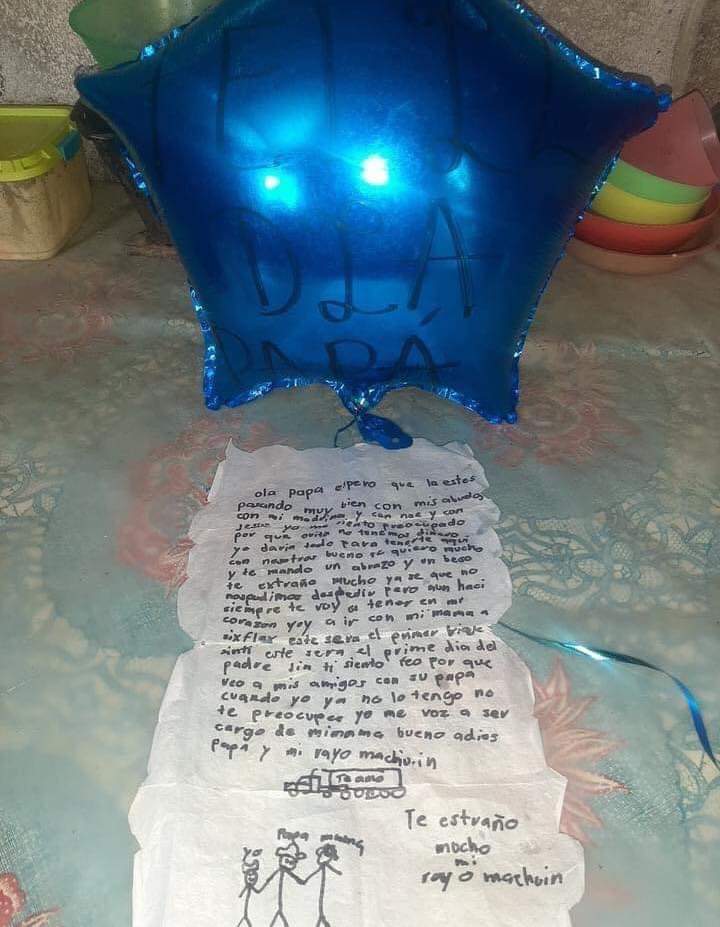 FELÍZ
DIA
PAPÁ
ola papa espero que la estes
pasando muy bien con mis abuelos
con mi madrina y con noe y con
Jesus yo me siento preocupado
por que orita no tenemos dinero
yo daria todo para tenerte aqui
con nosotros bueno te quiero mucho
y te mando un abrazo y un beso
te extraño mucho ya se que no
nospudimos despedir pero aun haci
siempre te voy a tener en mi
corazon voy a ir con mi mama a
sixflax este sera el primer viaje
sinti este sera el prime dia del
padre sin ti siento feo por que
veo a mis amigos con su papa
cuando yo ya no lo tengo no
te preocupes yo me voz a ser
cargo de mimama bueno adios
papa y mi rayo machuin
Te amo
Te estraño
mucho
mi
rayo machuin
yo Papa mamá